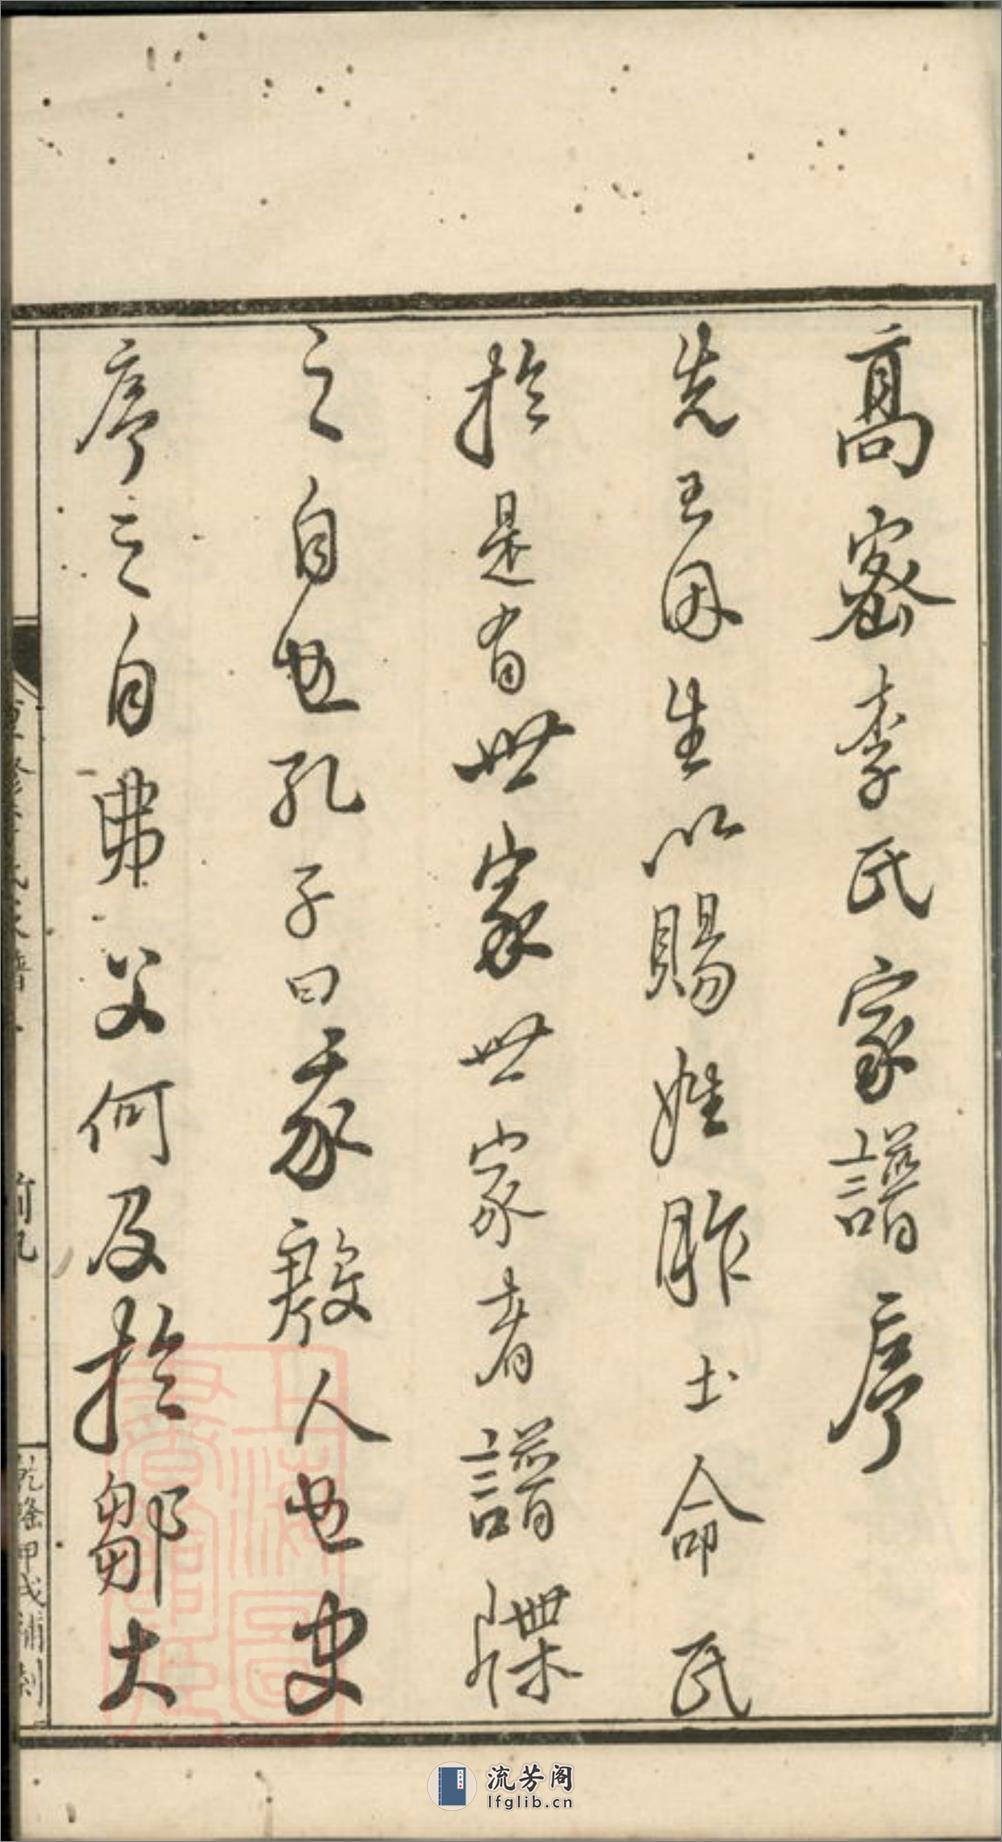 高密李氏家譜序
先王因生以賜姓胙土命氏
於是有世家世家者譜牒
之自也孔子曰承殷人也史
序之自弗父何及於鄹大
重修李氏家譜
前九
乾隆甲戌補刻
上海圖書館藏
流芳阁
lfglib.cn